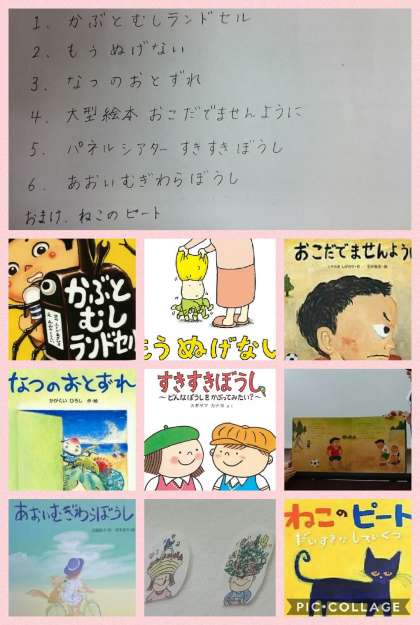 1. かぶとむしランドセル
2. もうぬげない
3. なつのおとずれ
4. 大型絵本 おこだでませんように
5. パネルシアター すきすきぼうし
6. あおいむぎわらぼうし
おまけ. ねこのピート
かぶと
むし
ランドセル
もう ぬげない
おこだでませんように
なつのおとずれ
かがくい ひろし 作・絵
すきすきぼうし
〜どんなぼうしを かぶってみたい?〜
あおいむぎわらぼうし
ねこのピート
だいすきな しろいくつ
PIC•COLLAGE